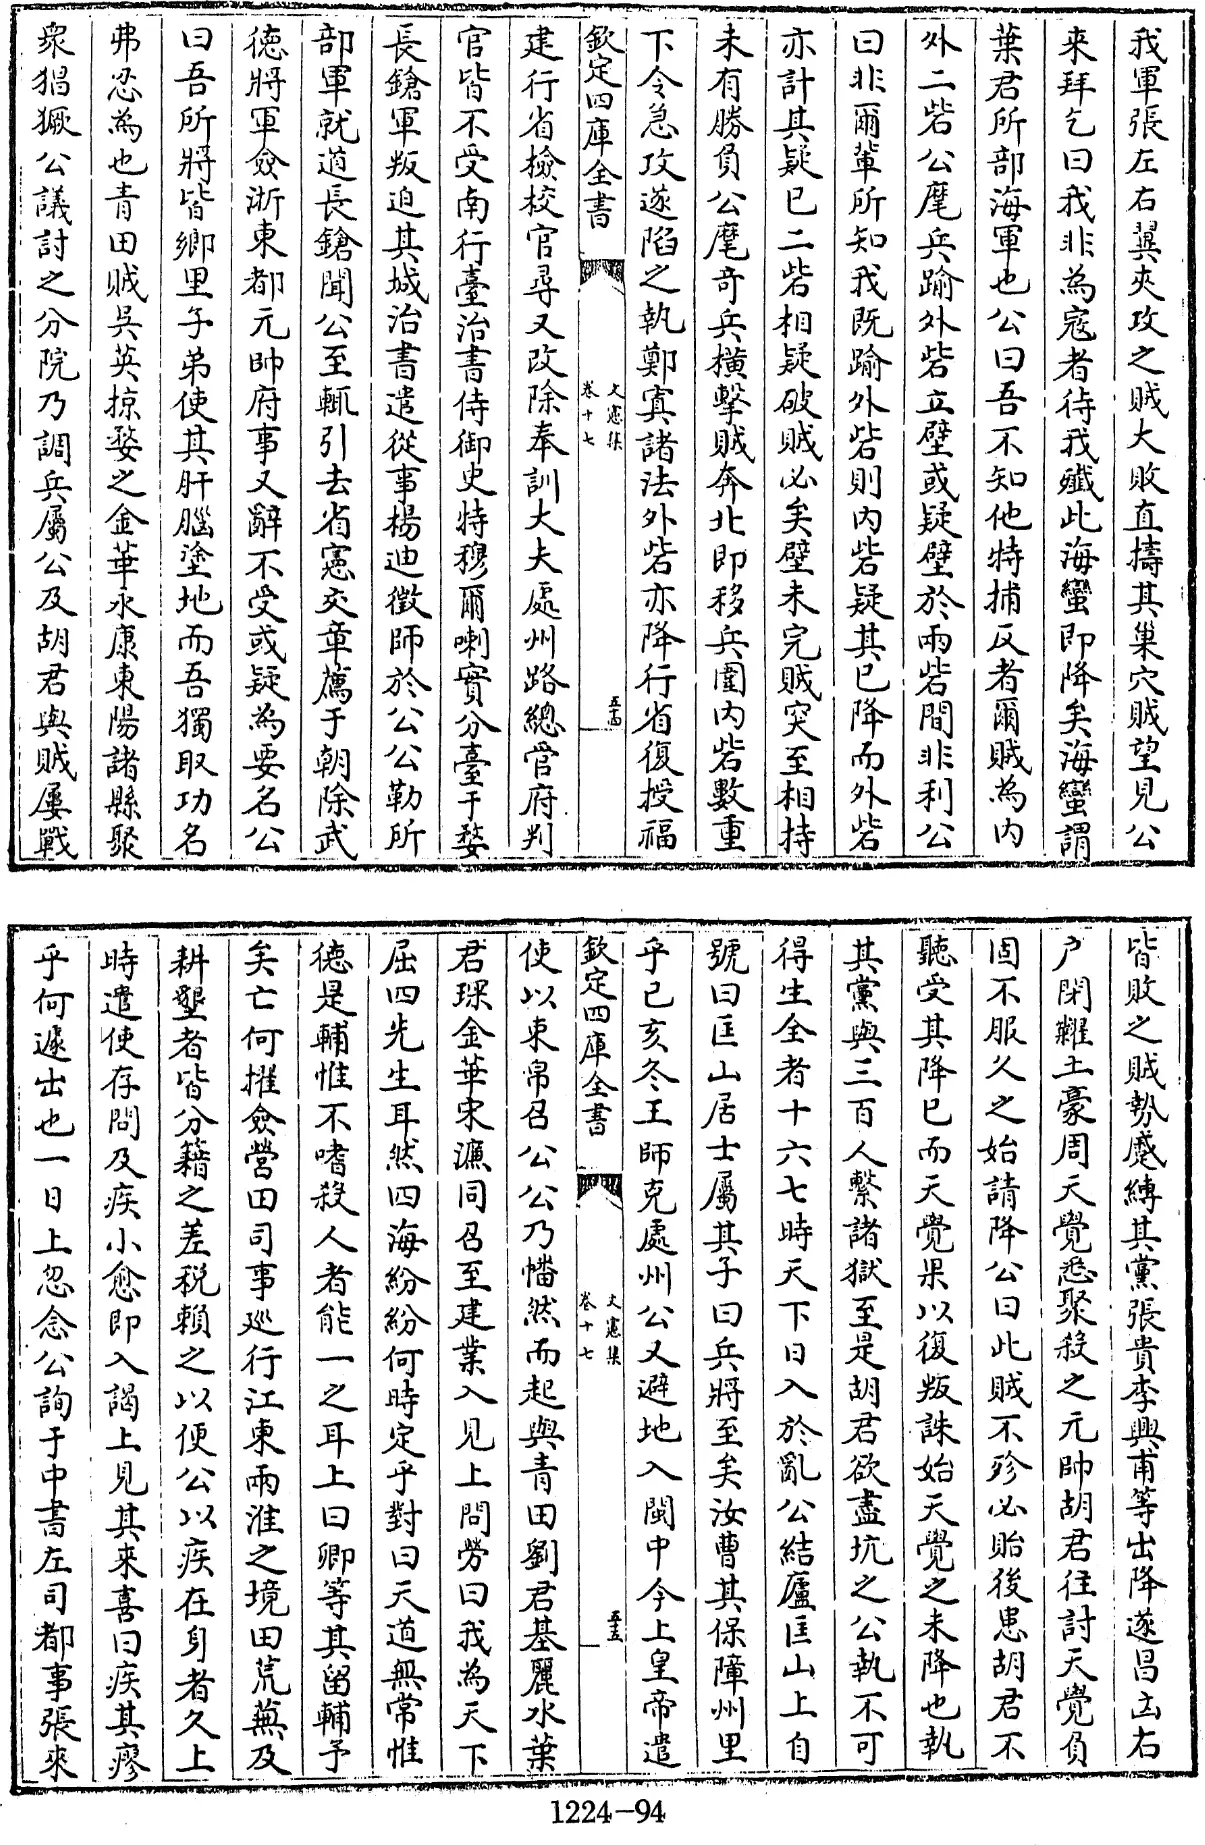 我軍張左右翼夾攻之賊大敗直擣其巢穴賊望見公
來拜乞曰我非為寇者待我殲此海蠻即降矣海蠻謂
葉君所部海軍也公曰吾不知他特捕反者爾賊為内
外二砦公麾兵踰外砦立壁或疑壁於兩砦間非利公
曰非爾輩所知我既踰外砦則内砦疑其已降而外砦
亦計其疑已二砦相疑破賊必矣壁未完賊突至相持
未有勝負公麾奇兵橫擊賊奔北即移兵圍内砦數重
下令急攻遂陷之執鄭寘諸法外砦亦降行省復授福
欽定四庫全書
文憲集
卷十七
五十四
建行省檢校官尋又改除奉訓大夫處州路總管府判
官皆不受南行臺治書侍御史特穆爾喇實分臺于婺
長鎗軍叛迫其城治書遣從事楊迪徵師於公公勒所
部軍就道長鎗聞公至輒引去省憲交章薦于朝除武
德將軍僉浙東都元帥府事又辭不受或疑為要名公
曰吾所將皆鄉里子弟使其肝腦塗地而吾獨取功名
弗忍為也青田賊吳英掠婺之金華永康東陽諸縣聚
衆猖獗公議討之分院乃調兵屬公及胡君與賊屢戰
皆敗之賊勢蹙縛其黨張貴李興甫等出降遂昌㓙右
户閉糴土豪周天覺悉聚殺之元帥胡君往討天覺負
固不服久之始請降公曰此賊不殄必貽後患胡君不
聽受其降已而天覺果以復叛誅始天覺之未降也執
其黨與三百人繫諸獄至是胡君欲盡坑之公執不可
得生全者十六七時天下日入於亂公結廬匡山上自
號曰匡山居士屬其子曰兵將至矣汝曹其保障州里
乎己亥冬王師克處州公又避地入閩中今上皇帝遣
欽定四庫全書
文憲集
卷十七
五十五
使以束帛召公公乃幡然而起與青田劉君基麗水葉
君琛金華宋濂同召至建業入見上問勞曰我為天下
屈四先生耳然四海紛紛何時定乎對曰天道無常惟
德是輔惟不嗜殺人者能一之耳上曰卿等其留輔予
矣亡何擢僉營田司事廵行江東兩淮之境田荒蕪及
耕墾者皆分籍之差税賴之以便公以疾在身者久上
時遣使存問及疾小愈即入謁上見其來喜曰疾其瘳
乎何遽出也一日上忽念公詢于中書左司都事張來
1224-94